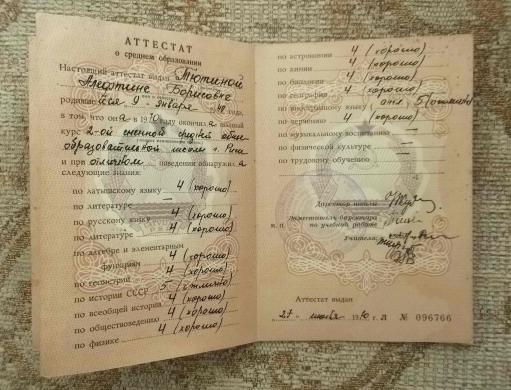 АТТЕСТАТ
о среднем образовании
Настоящий аттестат выдан Тютиной
Алевтине Борисовне
родившейся 9 января 19
в том, что она в 1970 году окончила полный
курс 2-ой сменной средней обще
образовательной школы г. Риги
и при отличном поведении обнаружила
следующие знания:
по латышскому языку 4 (хорошо)
по литературе —
по русскому языку 4 (хорошо)
по литературе 4 (хорошо)
по алгебре и элементарным
функциям 4 (хорошо)
по геометрии 4 (хорошо)
по истории СССР 5 (отлично)
по всеобщей истории 4 (хорошо)
по обществоведению 4 (хорошо)
по физике 4 (хорошо)
по астрономии 4 (хорошо)
по химии 4 (хорошо)
по биологии 4 (хорошо)
по географии 4 (хорошо)
по иностранному языку (англ.) 5 (отлично)
по черчению 4 (хорошо)
по музыкальному воспитанию —
по физической культуре —
по трудовому обучению —
Директор школы
Заместитель директора
по учебной работе
М. П.
Учителя:
Аттестат выдан
27 июня 1970 г. Л № 096766